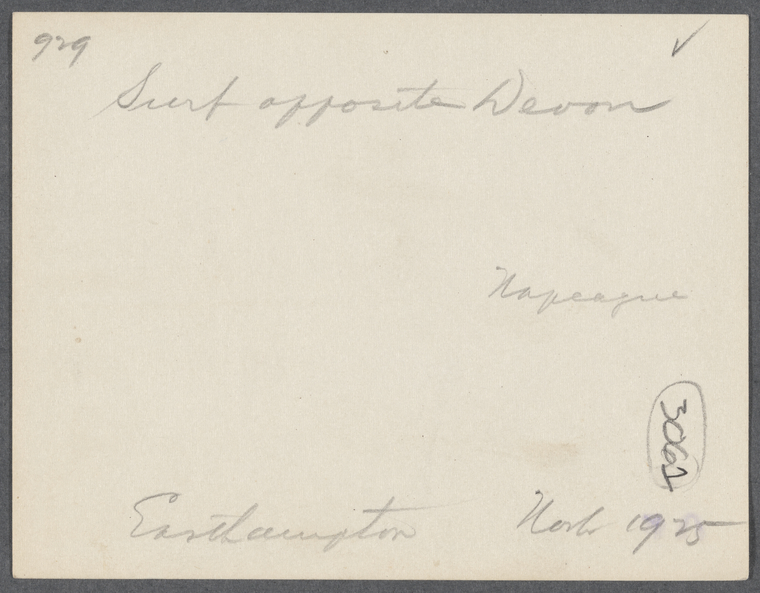 929 ✓
Surf opposite Devon
Napeague
3062
Easthampton 1925